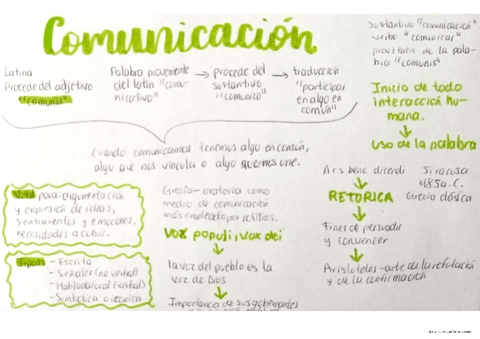 Comunicación
Latina
Procede del adjetivo
"comunis"
Palabra proveniente
del latín "comu-
nicativo"
→ procede del
sustantivo
"comunico"
→ traducción
"participar
en algo en
común"
Sustantivo "comunicación"
verbo "comunicar"
provienen de la pala-
bra "comunis"
Inicio de toda
interacción hu-
mana.
Uso de la palabra
Cuando comunicamos tenemos algo en común,
algo que nos vincula o algo que nos une.
Útil para: argumentación
y expresión de ideas,
sentimientos y emociones,
necesidades a cubrir.
Tipos - Escrita
- Señales (no verbal)
- Hablada/oral (verbal)
- Simbólica o icónica
Grecia - oratoria como
medio de comunicación
más empleado por políticos.
Vox populi, vox dei
la voz del pueblo es la
voz de Dios
Importancia de sus gobernantes
Ars bene dicendi
RETORICA
Siracusa
485 a.C.
Grecia clásica
Fines de persuadir
y convencer
Aristóteles - arte de la refutación
y de la confirmación